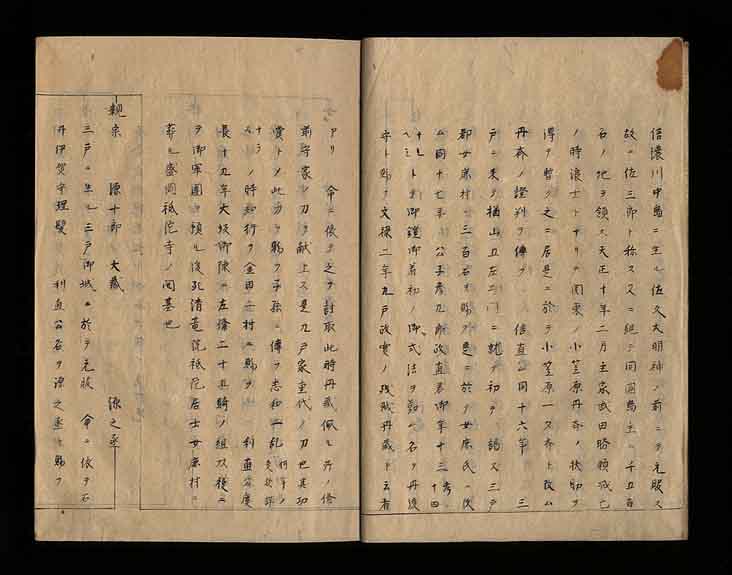 信濃川中島ニ生ル佐久大明神ノ前ニテ元服ス
故ニ佐三郎ト称ス又ニ 同国島 ニ千五百
石ノ地ヲ領ス天正十年二月主家武田勝頼滅亡
ノ時浪士トナリテ関東ノ小笠原丹斉ノ扶助ヲ
得テ暫ク之ニ居是ニ於テ小笠原一叉斉ト改ム
丹斉ノ證判ヲ傳フ 信直公同十六年 三
戸ニ来テ楢山五左衛門ニ就テ初テ 謁ス三戸
郡女鹿村ニテ三百石ヲ賜フ是ニ於テ女鹿氏ニ改
ム同十七年 公子彦九郎政直君御年十三 十四
トモ 御鎧御着初ノ御式法ヲ勤ム名ヲ丹後
守ト賜フ文禄二年九戸政實ノ残賊丹蔵ト云者
アリ 命ニ依テ之ヲ討取此時丹蔵佩ル所ノ備
前守家ノ刀ヲ献上ス是九戸家重代ノ刀也其功
賞トメ此刀ヲ賜フ子孫ニ傳フ志和一乱
ノ時知行ヲ金田一村ニ賜フ 利直公慶
長十九年大坂御陳ニ左備二十五騎ノ組頭後ニ
ヲ御軍團ヲ預ル後死清菴院祗陀居士女鹿村ニ
葬ル盛岡祗陀寺ノ開基也
親宗 源十郎 大蔵 源之丞
三戸ニ生ル三戸御城ニ於テ元服 命ニ依テ石
井伊賀守理髪 利直公名ヲ源之丞ト賜フ